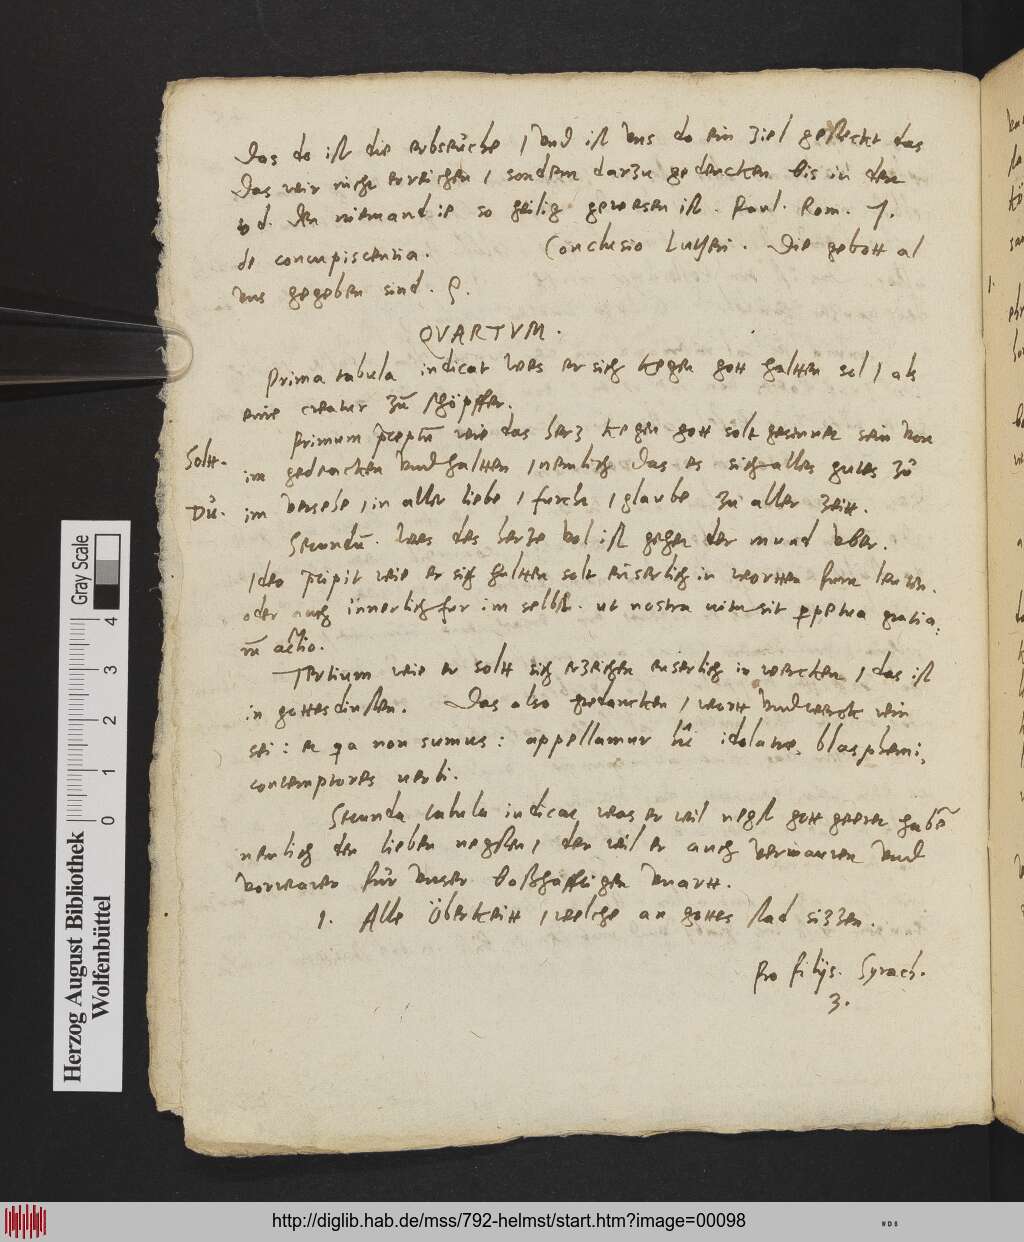 Das do ist die erbseuche / vnd ist vns do ein ziel gesteckt das
Das wir nicht erreichen / sondern darzu gedencken bis in den
tod. Den niemand ie so heilig gewesen ist. Paul. Rom. 7.
de concupiscentia. Conclusio Lutheri. Die gebott al
vns gegeben sind.
QVARTVM.
Prima tabula indicat wes er sich kegen gott halten sol / als
eine creatur zū schöpffer.
Primum p̄ceptū wie das herz kegen gott solt gesinnet sein von
Solt.
im gedencken vnd halten / nemlich das es sich alles gutes zů
Dů.
im versehe / in aller liebe / furcht / glaube zu aller zeitt.
Secundū. Wes das herze vol ist gehet der mund vber.
Ideo p̄cipit wie er sich halten solt eüserlich in worten
oder auch innerlich fur im selbst. ut nostra uita sit ꝑpetua gratia:
rū actio.
Tertium wie er solt sich erzeigen euserlich in wercken / das ist
in gottesdinsten. Das also gedancken / wort vnd werck rein
sei: et qa non sumus: appellamur hic idolatre, blasphemi,
contemptores uerbi.
Secunda tabula indicat was er wil negst gott geeret habē
nemlich den lieben negsten / den wil er auch verwaren vnd
vorwaren für vnser boßhafftigen vnart.
1. Alle Überkeitt / welche an gottes stad sizzen.
Pro filijs. Syrach.
3.
Herzog August Bibliothek
Wolfenbüttel
Gray Scale
0 1 2 3 4
http://diglib.hab.de/mss/792-helmst/start.htm?image=00098